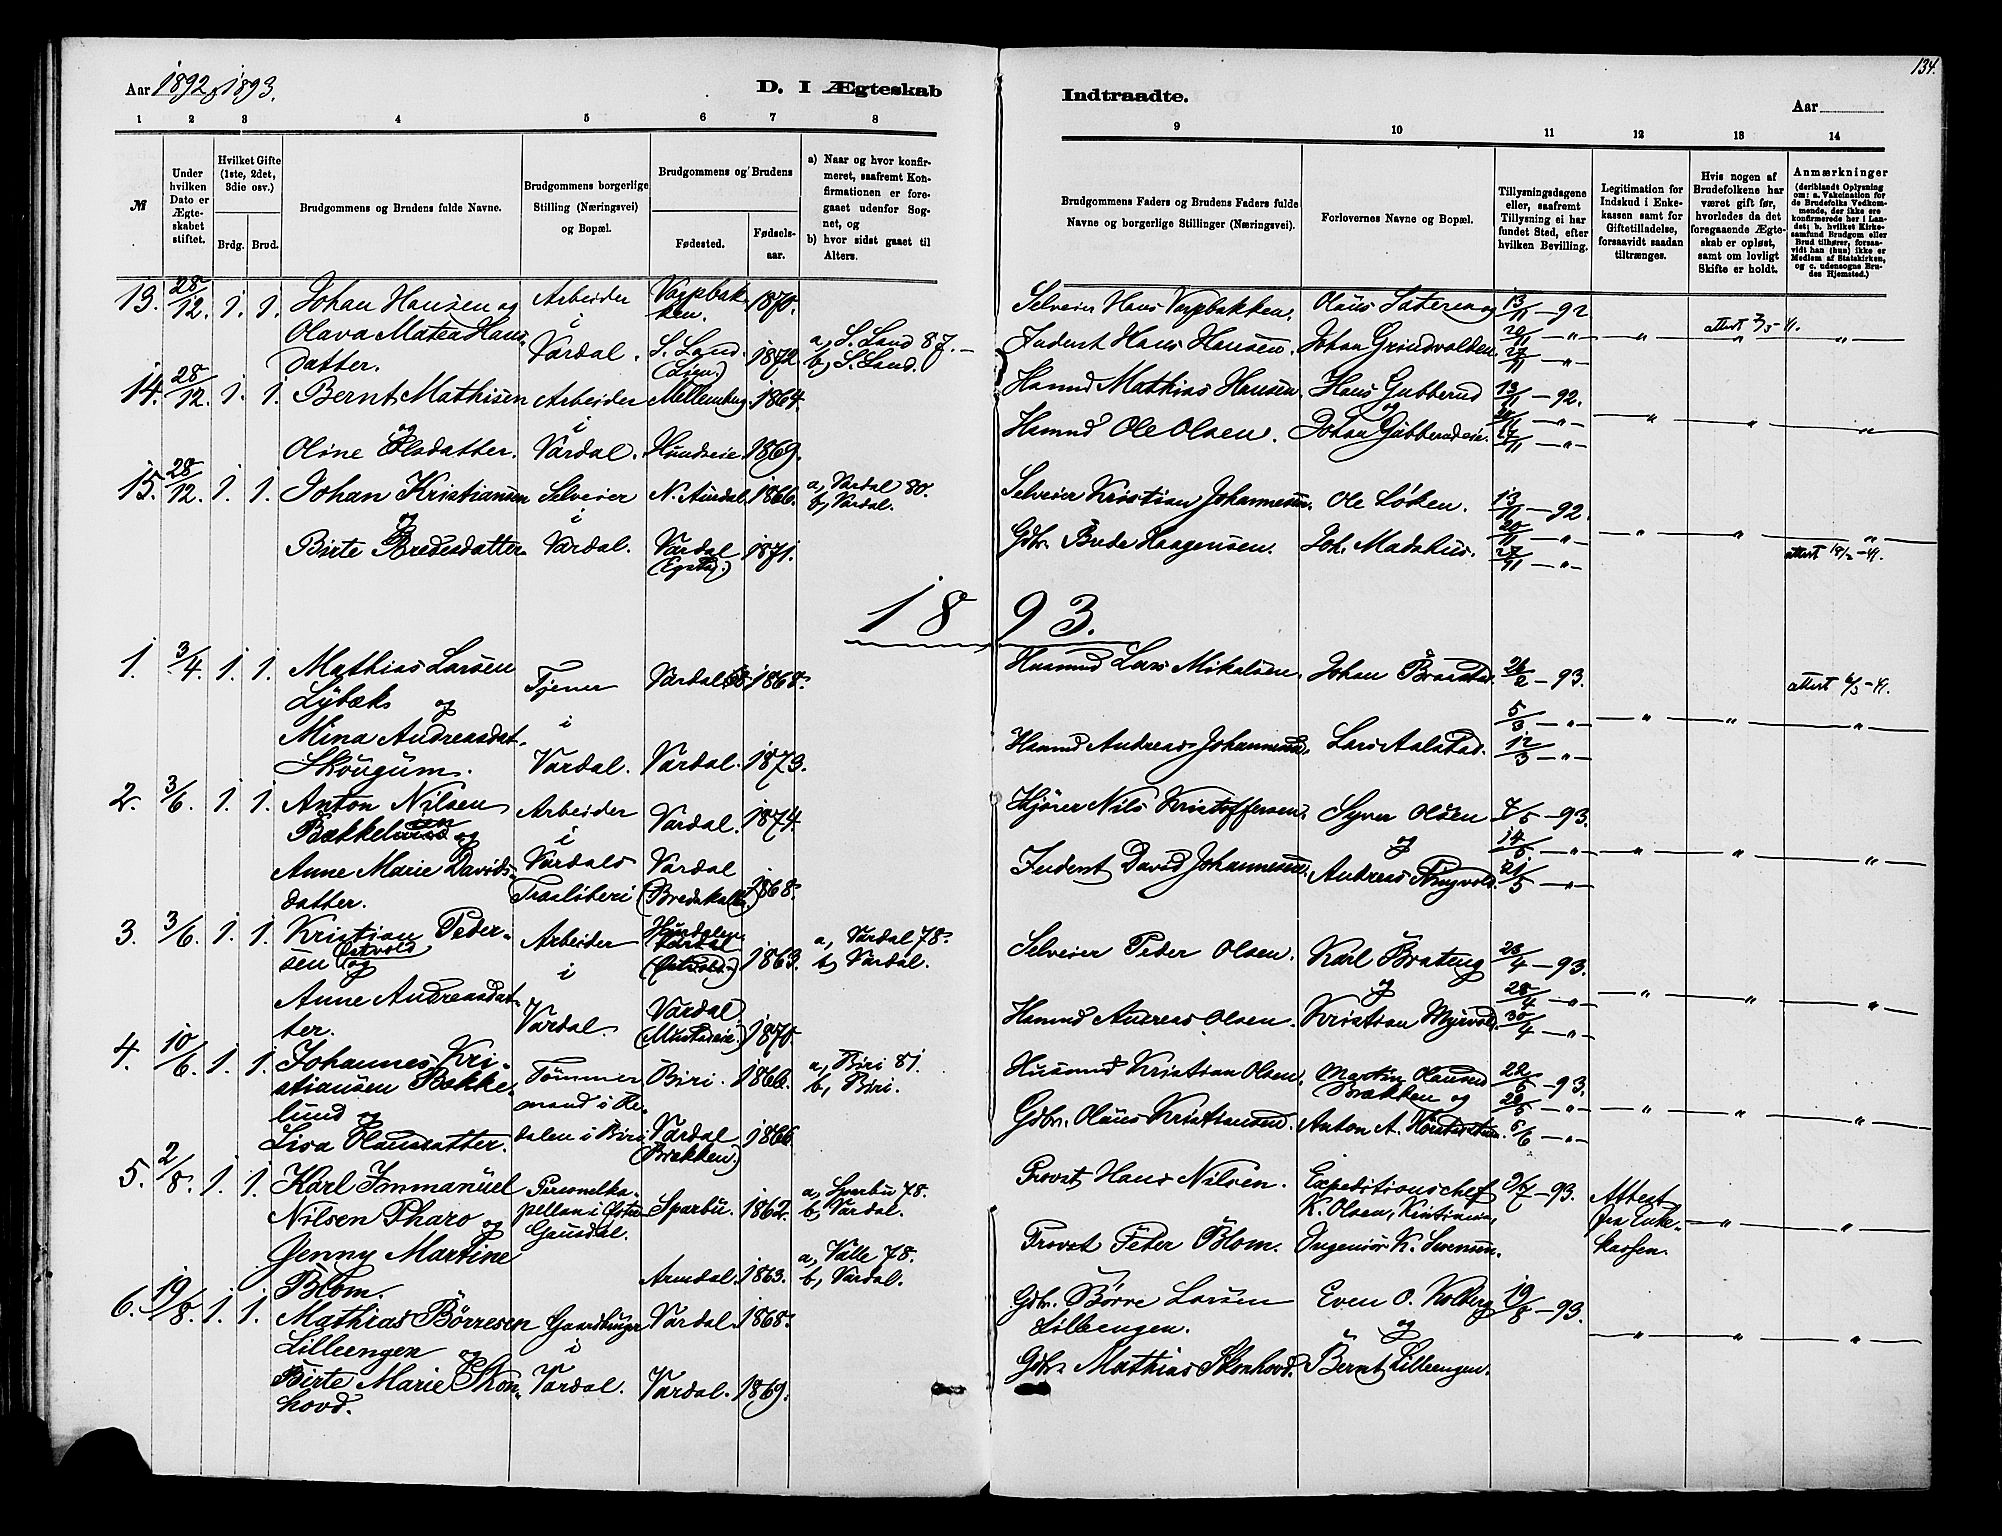 134.
Aar 1892 & 1893.
D. I Ægteskab
Indtraadte.
Aar
1 2 3 4 5 6 7 8
9 10 11 12 13 14
№
Under hvilken Dato er Ægteskabet stiftet.
Hvilket Gifte (1ste, 2det, 3die osv.)
Brdg. Brud.
Brudgommens og Brudens fulde Navne.
Brudgommens borgerlige Stilling (Næringsvei) og Bopæl.
Brudgommens og Brudens
Fødested.
Fødselsaar.
a) Naar og hvor konfirmeret, saafremt Konfirmationen er foregaaet udenfor Sognet, og
b) hvor sidst gaaet til Alters.
Brudgommens Faders og Brudens Faders fulde Navne og borgerlige Stillinger (Næringsvei).
Forlovernes Navne og Bopæl.
Tillysningsdagene eller, saafremt Tillysning ei har fundet Sted, efter hvilken Bevilling.
Legitimation for Indskud i Enkekassen samt for Giftetilladelse, forsaavidt saadan tiltrænges.
Hvis nogen af Brudefolkene har været gift før, hvorledes da det foregaaende Ægteskab er opløst, samt om lovligt Skifte er holdt.
Anmærkninger
(deriblandt Oplysning om: a. Vakcination for de Brudefolks Vedkommende, der ikke ere konfirmerede her i Landet; b. hvilket Kirkesamfund Brudgom eller Brud tilhører, forsaavidt han (hun) ikke er Medlem af Statskirken, og c. udensogns Brudes Hjemsted.)
13. 28/12. 1. 1. Johan Hansen og Arbeider Varpbakken. 1870. Selveier Hans Varpbakken. Olaus Sæteren og 13/11 - 92
Olava Matea Hans- i attest 7/5-41.
datter. Vardal. S. Land. 1872. a, S. Land 87. b, S. Land. Inderst Hans Hansen. Johan Grindvolden. 20/11 - " - 27/11 - " -
14. 28/12. 1. 1. Bernt Mathisen Arbeider 1864. Husmd Mathias Hansen. Hans Gubberud 13/11 - 92.
og i og 20/11 - " -
Oline Olsdatter. Vardal. Hundseie. 1869. Husmd Ole Olsen. Johan Gubberudeie. 27/11 - " -
15. 28/12. 1. 1. Johan Kristiansen Selveier N. Aurdal. 1866. a, Vardal 80. b, Vardal. Selveier Kristian Johannessen. Ole Løken. 13/11 - 92.
og i 20/11 - " -
Birte Bredesdatter. Vardal. Vardal 1871. Gdbr. Brede Haagensen. Joh. Madshus. 27/11 - " -
1893.
1. 3/4. 1. 1. Mathias Larsen Tjener Vardal 1868. Husmd Lars Mikalsen. Johan Braastad. 26/2 - 93.
Lybæk og i 5/3 - " -
Mina Andreasdat.
Skougum. Vardal. Vardal. 1873. Husmd Andreas Johannessen. Lars Aalstad. 12/3 - " -
2. 3/6. 1. 1. Anton Nilsen Arbeider Vardal. 1874. Kjører Nils Kristoffersen. Syver Olsen 7/5 - 93.
i og 14/5 - " -
Anne Marie Davids- Vardals Vardal Inderst David Johannessen. 21/5 - " -
datter. Træsliberi 1868.
3. 3/6. 1. 1. Kristian Peder- Arbeider 1863. a, Vardal 78. b, Vardal. Selveier Peder Olsen. Karl Brateng 23/4 - 93.
sen Østvold og i og 28/4 - " -
Anne Andreasdat- Vardal
ter. Vardal. 1870. Husmd Andreas Olsen. Kristian Myrvold. 30/4 - " -
4. 10/6. 1. 1. Johannes Kri- Tømmer- Biri. 1866. a, Biri 81. b, Biri. Husmd Kristian Olsen. Martin Olausen 22/5 - 93.
stiansen Bække- mand i Re- Brækken og 28/5 - " -
lund og dalen i Biri Vardal
Lisa Olausdatter. (Brækken) 1866. Gdbr. Olaus Kristiansen. 5/6 - " -
5. 2/8. 1. 1. Karl Immanuel Personelka- Sparbu. 1862. a, Sparbu 78. b, Vardal. Provst Hans Nilsen. Expeditionschef 9/7 - 93. Attest
Nilsen Tharo og pellan i Østre K. Olsen, Kristiania, fra Enke-
Jenny Martine Gausdal. Provst Peter Blom. Ingeniør K. Sørensen. kassen.
Blom. Arendal. 1863. a, Valle 78. b, Vardal.
6. 19/8. 1. 1. Mathias Børresen Gaardbruger Vardal. 1868. Gdbr. Børre Larsen Even O. Kolberg 19/8 - 93.
Lilleengen og i Lilleengen. og
Birte Marie Skon- Vardal. Vardal. 1869. Gdbr. Mathias Skonhovd. Bernt Lilleengen.
hovd.